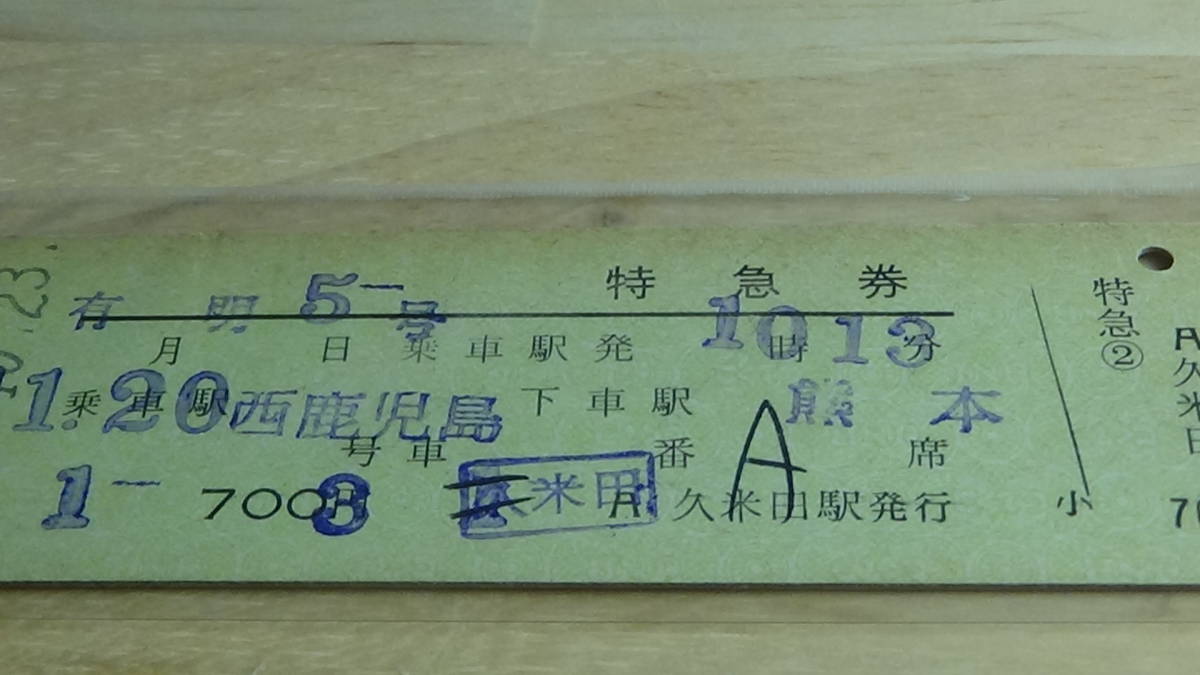 特急券
有明 5 号 10 13
月 日 乗車駅発 時 分
1.20 西鹿児島 熊本
乗車駅 下車駅
号車 番 A 席
1 3
700円 久米田駅発行
米田
特急②
小
久米田
23